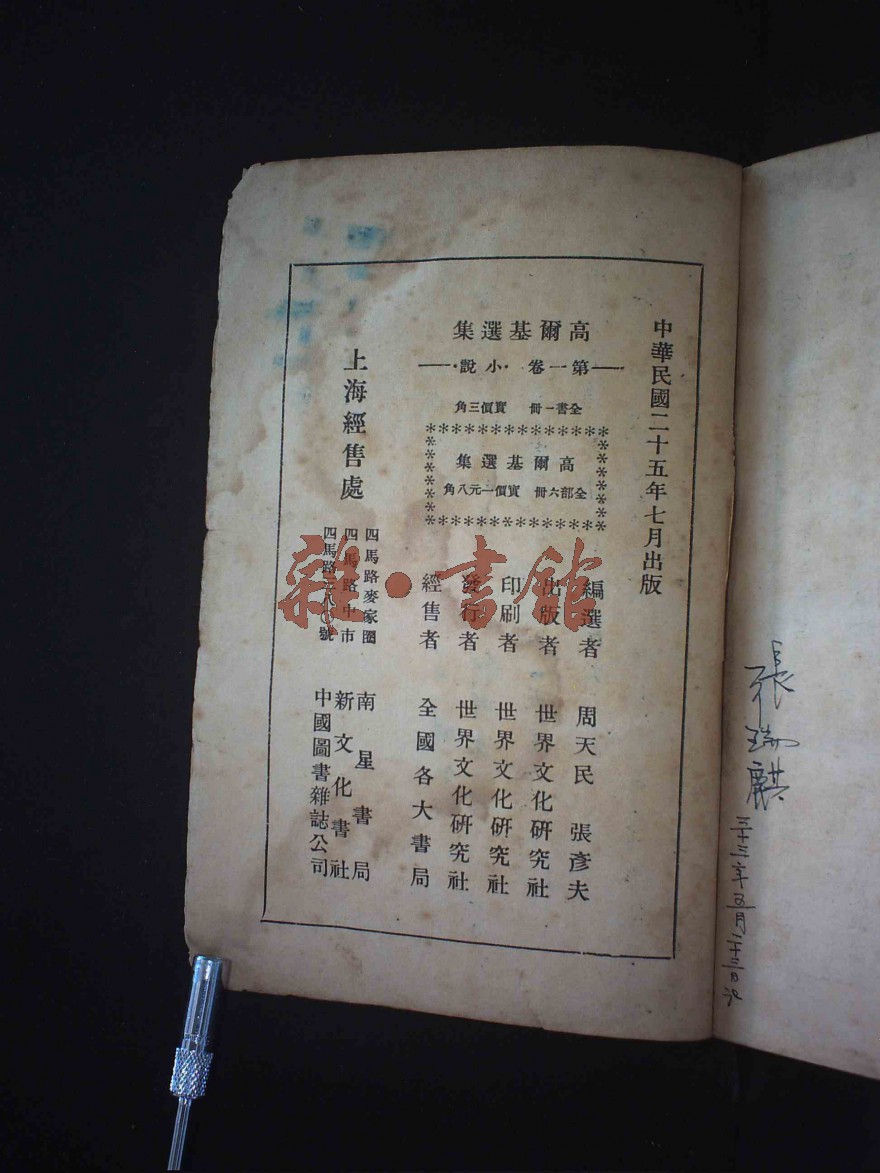 中華民國二十五年七月出版
高爾基選集
第一卷·小說·
全書一冊 實價三角
高爾基選集
全部六冊 實價一元八角
編選者 周天民 張彥夫
出版者 世界文化研究社
印刷者 世界文化研究社
發行者 世界文化研究社
經售者 全國各大書局
上海經售處
四馬路麥家圈 南星書局
四馬路中市 新文化書社
四馬路三八〇號 中國圖書雜誌公司
雜·書館
張瑞麒
三十三年五月二十三日